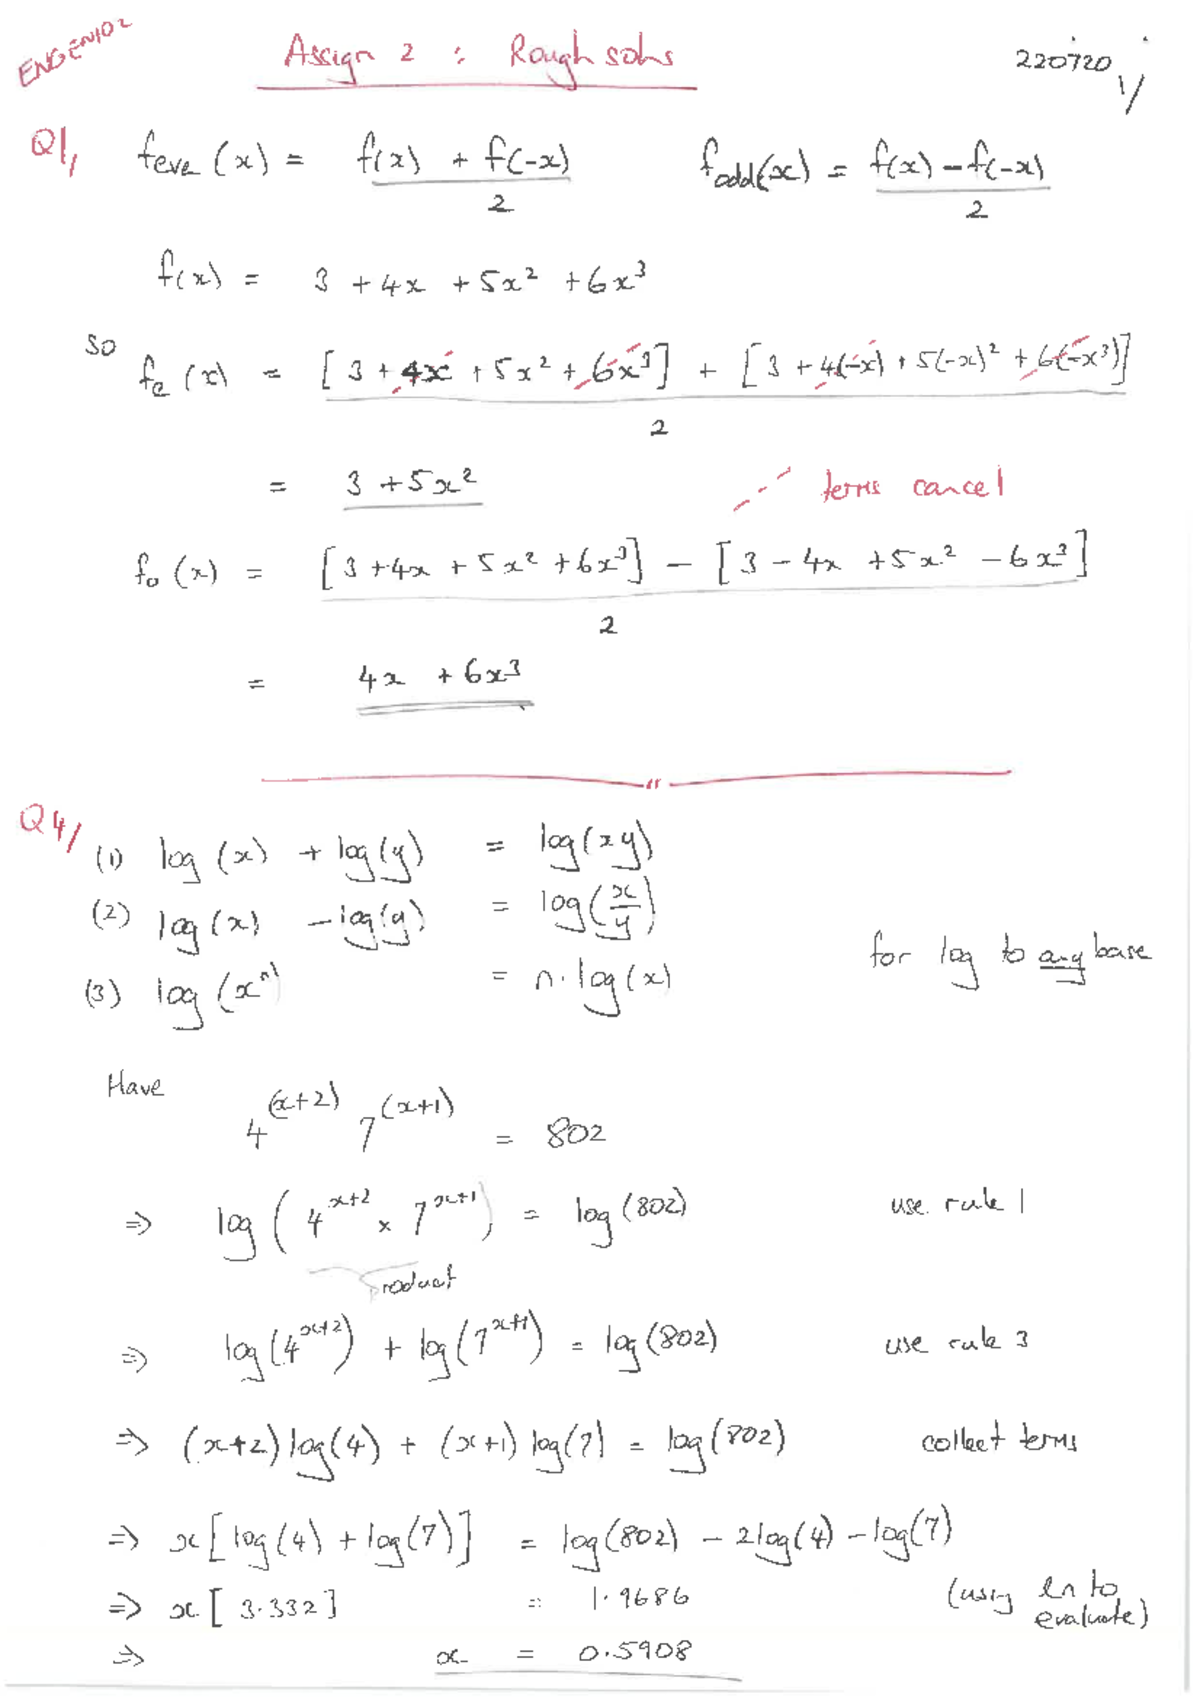 ENGEN102
Assign 2 : Rough solns
220720 1/
Q1, feven (x) = f(x) + f(-x) / 2 fodd(x) = f(x) - f(-x) / 2
f(x) = 3 + 4x + 5x² + 6x³
So fe (x) = [3 + 4x + 5x² + 6x³] + [3 + 4(-x) + 5(-x)² + 6(-x³)] / 2
= 3 + 5x²
terms cancel
fo (x) = [3 + 4x + 5x² + 6x³] - [3 - 4x + 5x² - 6x³] / 2
= 4x + 6x³
Q4/
(1) log (x) + log(y) = log(xy)
(2) log (x) - log(y) = log(x/y)
for log to any base
(3) log (xⁿ) = n.log(x)
Have
4^(x+2) 7^(x+1) = 802
⇒ log ( 4^x+2 × 7^x+1 ) = log (802) use rule 1
product
⇒ log (4^x+2) + log (7^x+1) = log (802) use rule 3
⇒ (x+2) log(4) + (x+1) log(7) = log(802) collect terms
⇒ x[log(4) + log(7)] = log(802) - 2log(4) - log(7)
⇒ x [3.332] = 1.9686 (using ln to evaluate)
⇒ x = 0.5908